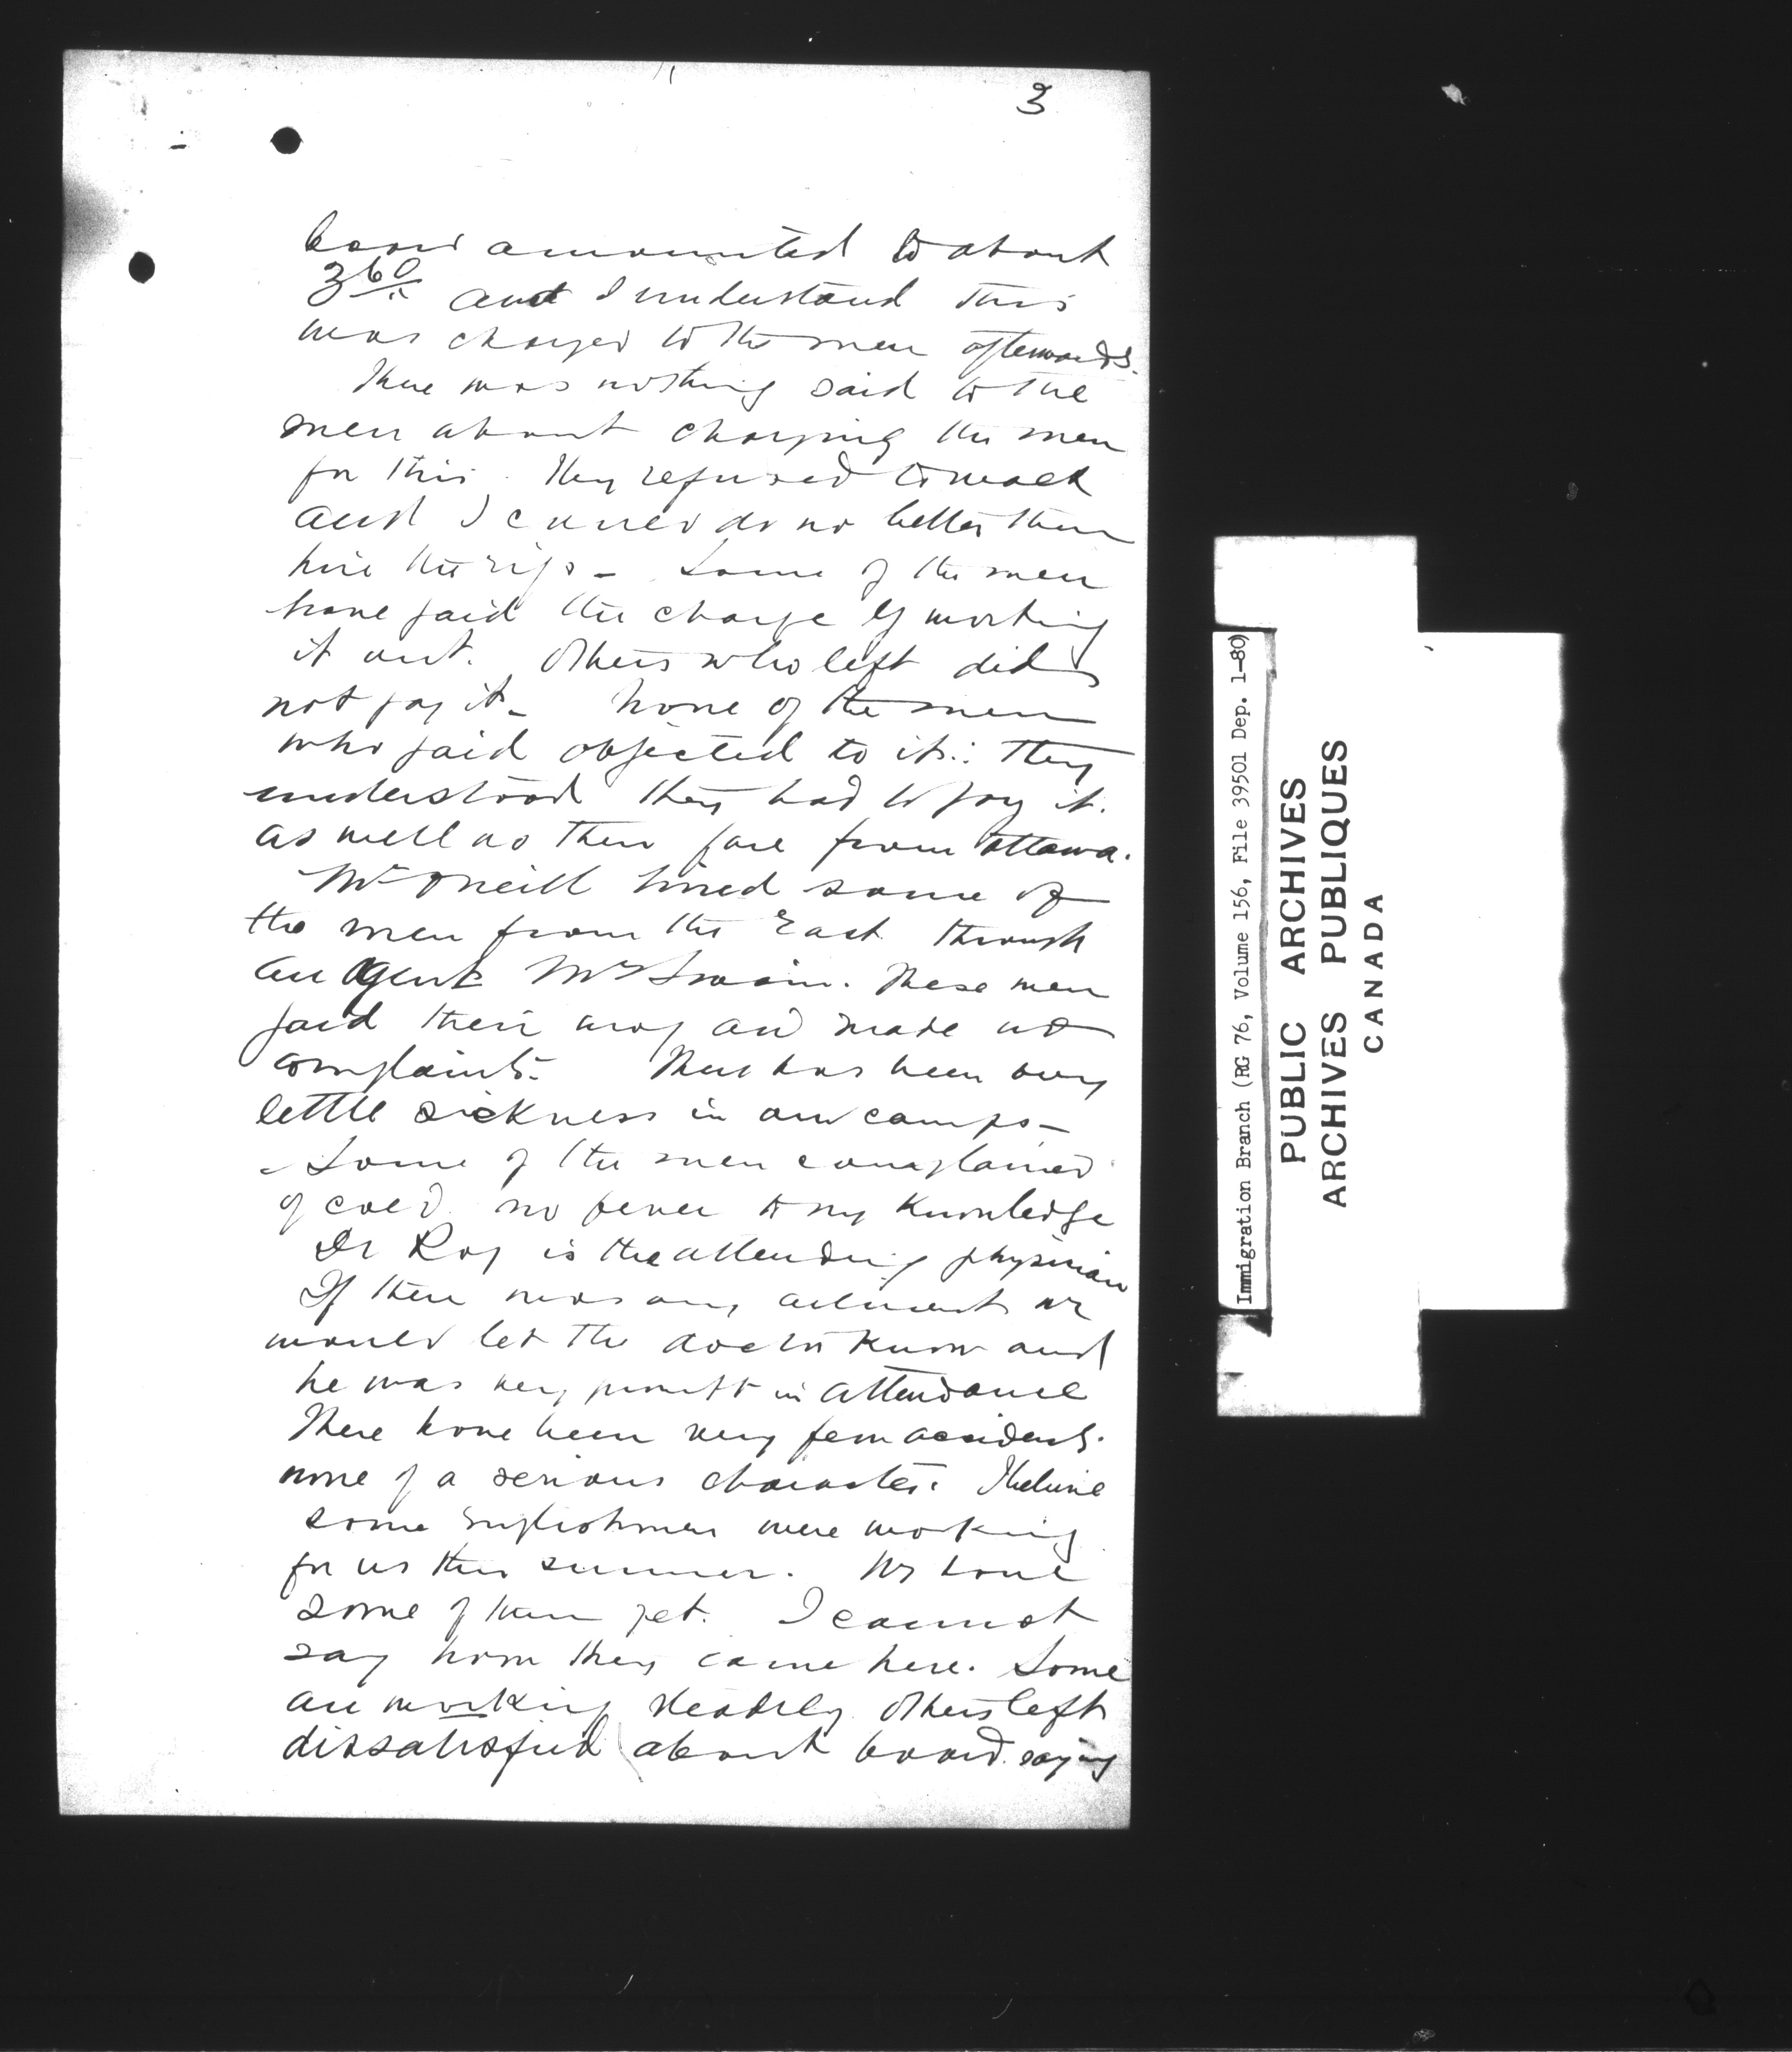 3
board amounted to about
3 60 and I understand this
was charged to the men afterwards.
There was nothing said to the
men about charging the men
for this. They refused to walk
and I could do no better than
hire the rigs – Some of the men
have paid the charge by working
it out. Others who left did
not pay it – None of the men
who paid objected to it: They
understood they had to pay it.
as well as their fare from Ottawa.
Mr Oneill hired some of
the men from the East through
an Agent Mr Swain. These men
paid their way and made no
complaints. There has been very
little sickness in our camps –
Some of the men complained
of cold. no fever to my knowledge
Dr Roy is the attending physician
If there was any ailment we
would let the doctor know and
he was very prompt in attendance
There have been very few accidents.
none of a serious character. I believe
some Englishmen were working
for us this summer. We have
some of them yet. I cannot
say how they came here. Some
are working steadily others left
dissatisfied about board. saying
Immigration Branch (RG 76, Volume 156, File 39501 Dep. 1-80)
PUBLIC ARCHIVES
ARCHIVES PUBLIQUES
CANADA